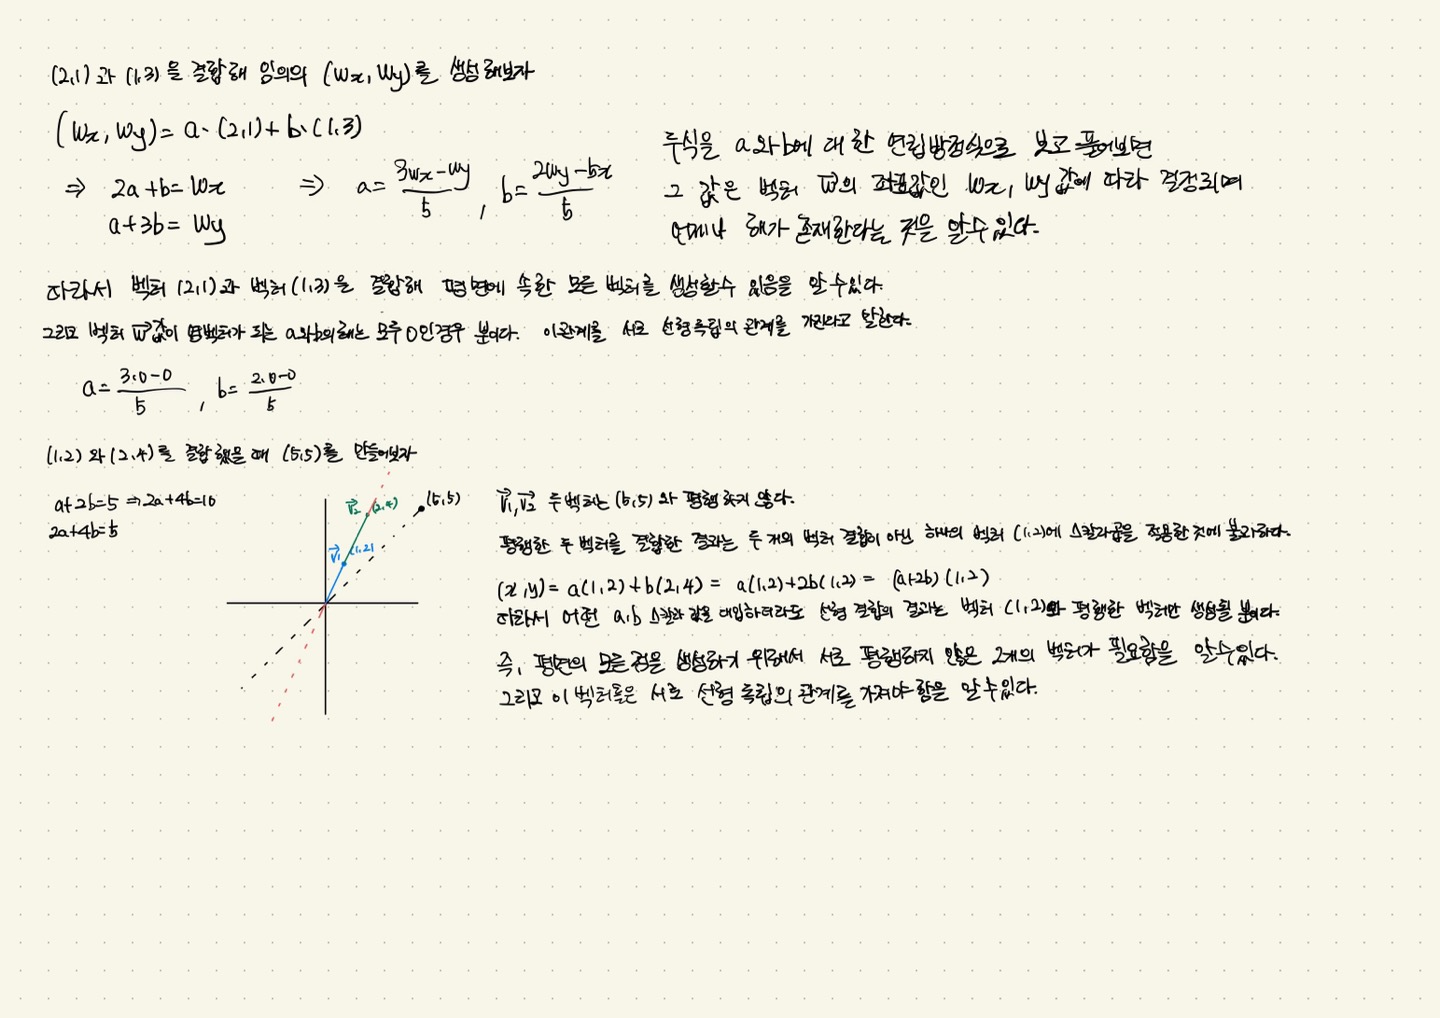 (2,1)과 (1,3)을 결합해 임의의 (wx, wy)를 생성해보자
(wx, wy) = a·(2,1) + b·(1,3)
⇒ 2a+b = wx ⇒ a = (3wx-wy)/5 , b = (2wy-bx)/5
a+3b = wy
두식을 a와b에 대한 연립방정식으로 보고 풀어보면
그 값은 벡터 w의 좌표값인 wx, wy값에 따라 결정되며
언제나 해가 존재한다는 것을 알수있다.
따라서 벡터 (2,1)과 벡터(1,3)을 결합해 평면에 속한 모든 벡터를 생성할수 있음을 알수있다.
그리고 벡터 w값이 영벡터가 되는 a와b의해는 모두 0인경우 뿐이다. 이관계를 서로 선형독립의 관계를 가진다고 말한다.
a = (3·0-0)/5 , b = (2·0-0)/5
(1,2)와 (2,4)를 결합했을 때 (5,5)를 만들어보자
a+2b=5 ⇒2a+4b=10
2a+4b=5
v2 (2,4)
(5,5)
v1 (1,2)
v1, v2 두벡터는 (5,5)와 평행하지 않다.
평행한 두 벡터를 결합한 결과는 두 개의 벡터 결합이 아닌 하나의 벡터 (1,2)에 스칼라곱을 적용한 것에 불과하다.
(x,y) = a(1,2)+b(2,4) = a(1,2)+2b(1,2) = (a+2b)(1,2)
따라서 어떤 a,b 스칼라 값을 대입하더라도 선형 결합의 결과는 벡터 (1,2)와 평행한 벡터만 생성될 뿐이다.
즉, 평면의 모든 점을 생성하기 위해서 서로 평행하지 않은 2개의 벡터가 필요함을 알수있다.
그리고 이 벡터들은 서로 선형 독립의 관계를 가져야 함을 알수있다.